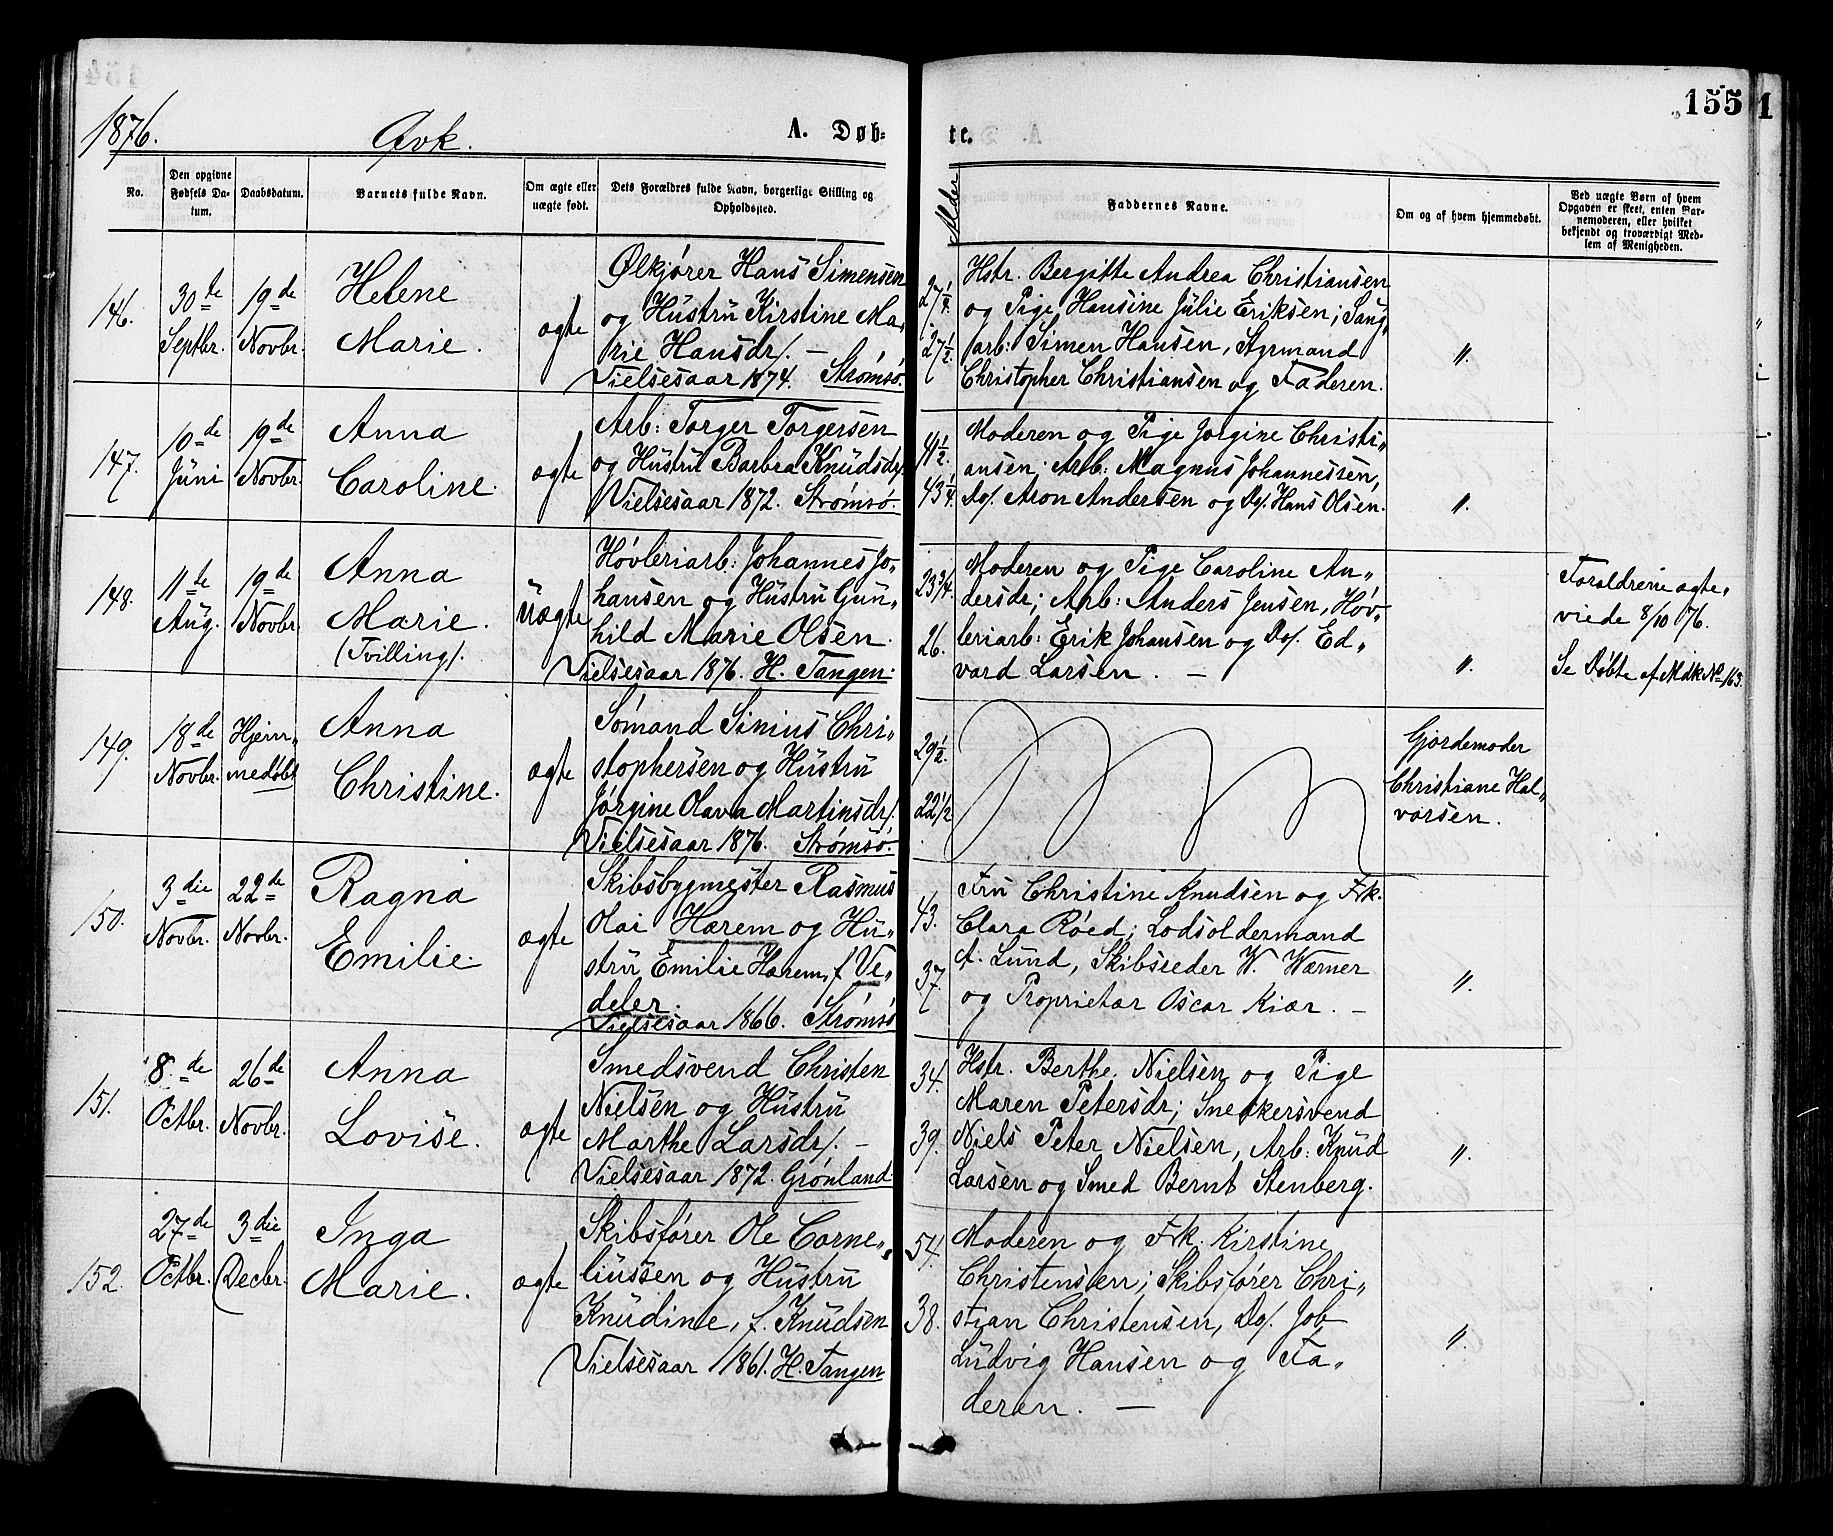 155
1
1876.
Qvk.
A. Døb-
te.
No.
Den opgivne
Fødsels Da-
tum.
Daabsdatum.
Barnets fulde Navn.
Om ægte eller
uægte født.
Dets Forældres fulde Navn, borgerlige Stilling og
Opholdssted.
Alder
Faddernes Navne.
Om og af hvem hjemmedøbt.
Ved uægte Børn af hvem
Opgaven er skeet, enten Bar-
nemoderen, eller hvilket
bekjendt og troværdigt Med-
lem af Menigheden.
146.
30te
Septbr.
19de
Novbr.
Helene
Marie.
ægte
Ølkjører Hans Simensen
og Hustru Kirstine Ma„
rie Hansdr/. —
Vielsesaar 1874. Strømsø.
27 1/4.
27 1/2.
Hstr. Bergitte Andrea Christiansen
og Pige Hansine Julie Eriksen; Saug„
arb: Simen Hansen, Styrmand
Christopher Christiansen og Faderen.
"
147.
10de
Juni
19de
Novbr.
Anna
Caroline.
ægte
Arb: Torger Torgersen
og Hustru Barbra Knudsdr/
Vielsesaar 1872. Strømsø.
41 1/2.
43 1/4.
Moderen og Pige Jorgine Christi„
ansen; Arb: Magnus Johannessen,
Do/. Aron Andersen og Do/. Hans Olsen.
"
148.
11te
Aug.
19de
Novbr.
Anna
Marie.
(Tvilling/.
Uægte
Høvleriarb: Johannes Jo„
hansen og Hustru Gun„
hild Marie Olsen.
Vielsesaar 1876. H. Tangen.
23 3/4.
26.
Moderen og Pige Caroline An„
dersdr; Arb: Anders Jensen, Høv„
leriarb: Erik Johansen og Do/. Ed„
vard Larsen. —
"
Forældrene ægte„
viede 8/10 76.
Se Døbte af Mdk No 163.
149.
18de
Novbr.
Hjem„
medøbt
Anna
Christine.
ægte
Sømand Sinius Chri„
stophersen og Hustru
Jørgine Olava Martinsdr/.
Vielsesaar 1876. Strømsø.
29 1/2.
22 1/2
Gjordemoder
Christiane Hal„
vorsen.
150.
3die
Novbr.
22de
Novbr.
Ragna
Emilie.
ægte
Skibsbygmester Rasmus
Olai Hærem og Hu„
stru Emilie Hærem, f. Ve„
deler.
Vielsesaar 1866. Strømsø
43.
37.
Fru Christine Knudsen og Frk.
Clara Røed; Lodsoldermand
A. Lund, Skibsreder W. Wærner
og Proprietær Oscar Kiær. —
"
151.
8de
Octbr.
26de
Novbr.
Anna
Lovise.
ægte
Smedsvend Christen
Nielsen og Hustru
Marthe Larsdr/. —
Vielsesaar 1872. Grønland
34.
39.
Hstr. Berthe Nielsen og Pige
Maren Petersdr; Snekkersvend
Niels Peter Nielsen, Arb: Knud
Larsen og Smed Bernt Stenberg.
"
152.
27de
Octbr.
3die
Decbr.
Inga
Marie.
ægte
Skibsfører Ole Corne„
liussen og Hustru
Knudine, f. Knudsen
Vielsesaar 1861. H. Tangen
54.
38.
Moderen og Frk. Kirstine
Christensen; Skibsfører Chri„
stian Christensen, Do/. Job
Ludvig Hansen og Fa„
deren. —
"